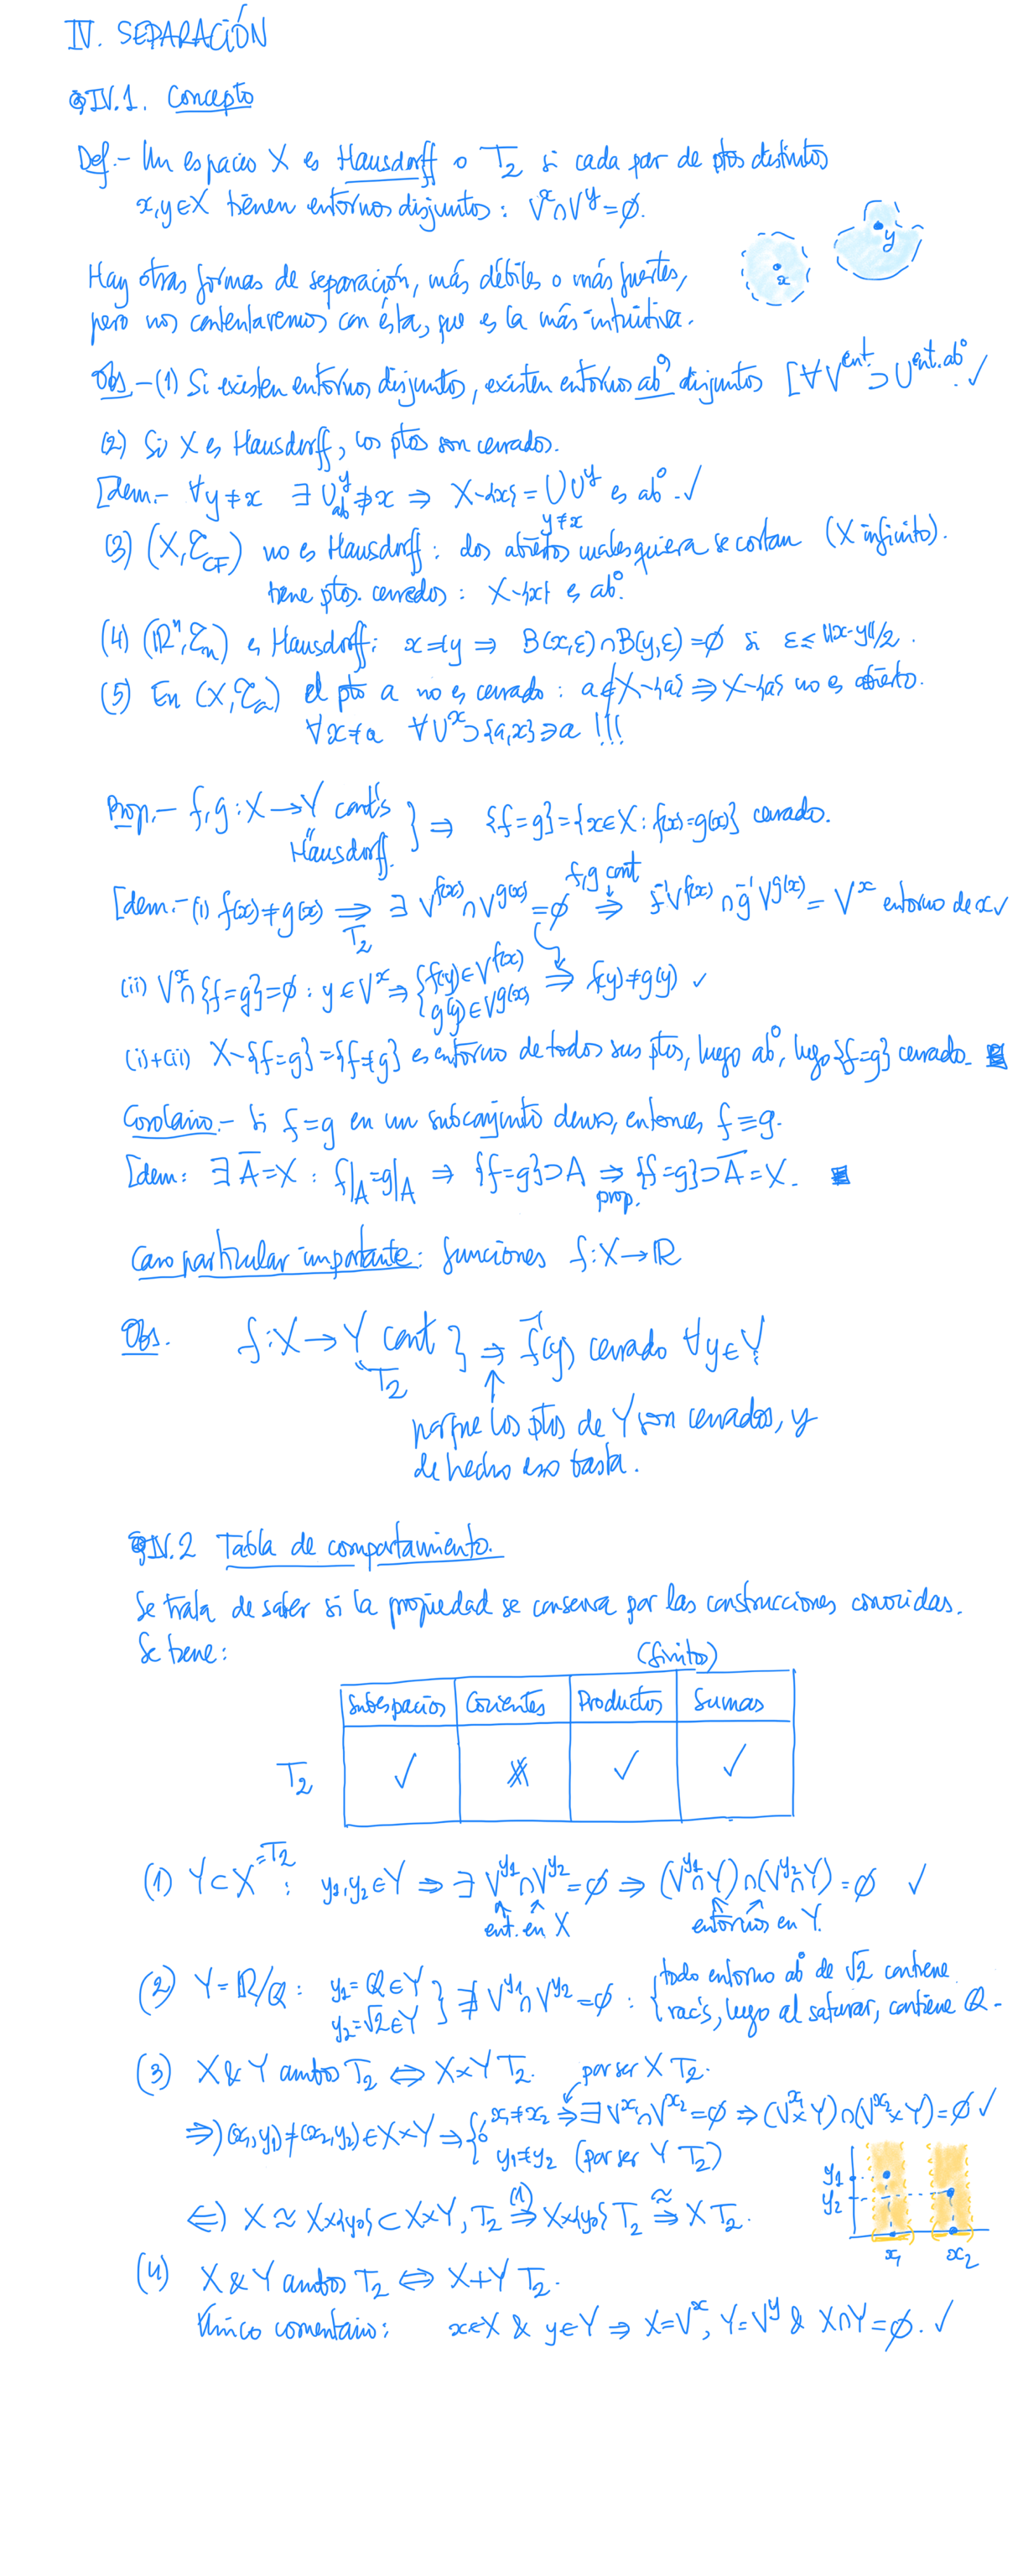 IV. SEPARACIÓN
§IV.1. Concepto
Def.- Un espacio X es Hausdorff o T₂ si cada par de ptos distintos
x,y∈X tienen entornos disjuntos: Vˣ∩Vʸ=∅.
x y
Hay otras formas de separación, más débiles o más fuertes,
pero nos contentaremos con ésta, que es la más intuitiva.
Obs.-(1) Si existen entornos disjuntos, existen entornos abº disjuntos [∀V^ent. ⊃ U^ent.abº. ✓
(2) Si X es Hausdorff, los ptos son cerrados.
[dem.- ∀y≠x ∃ U^y_ab ∌ x ⇒ X-{x} = ∪_{y≠x} U^y es abº. ✓
(3) (X,𝒯_CF) no es Hausdorff: dos abiertos cualesquiera se cortan (X infinito).
tiene ptos. cerrados: X-{x} es abº.
(4) (ℝⁿ,𝒯_u) es Hausdorff: x≠y ⇒ B(x,ε)∩B(y,ε)=∅ si ε≤||x-y||/2.
(5) En (X,𝒯_a) el pto a no es cerrado: a∉X-{a} ⇒ X-{a} no es abierto.
∀x≠a ∀Uˣ⊃{a,x}∋a !!!
Prop.- f,g: X→Y cont's
Hausdorff. } ⇒ {f=g}={x∈X: f(x)=g(x)} cerrado.
[dem.-(i) f(x)≠g(x) ⇒_{T₂} ∃ V^{f(x)}∩V^{g(x)}=∅ ⇒^{f,g cont} f⁻¹V^{f(x)}∩g⁻¹V^{g(x)}=Vˣ entorno de x ✓
(ii) Vˣ∩{f=g}=∅: y∈Vˣ ⇒ {f(y)∈V^{f(x)} g(y)∈V^{g(x)} ⇒ f(y)≠g(y) ✓
(i)+(ii) X-{f=g}={f≠g} es entorno de todos sus ptos, luego abº, luego {f=g} cerrado.
Corolario.- Si f=g en un subconjunto denso, entonces f≡g.
[dem: ∃ A̅=X : f|_A=g|_A ⇒ {f=g}⊃A ⇒_{prop.} {f=g}⊃A̅=X.
Caso particular importante: funciones f:X→ℝ
Obs. f:X→Y cont } ⇒ f⁻¹(y) cerrado ∀y∈Y.
T₂
porque los ptos de Y son cerrados, y
de hecho eso basta.
§IV.2 Tabla de comportamiento.
Se trata de saber si la propiedad se conserva por las construcciones conocidas.
Se tiene: (finitos)
Subespacios Cocientes Productos Sumas
T₂ ✓ ✗ ✓ ✓
(1) Y⊂X=T₂: y₁,y₂∈Y ⇒ ∃ V^{y₁}∩V^{y₂}=∅ ⇒ (V^{y₁}∩Y)∩(V^{y₂}∩Y)=∅ ✓
ent. en X entornos en Y.
(2) Y=ℝ/ℚ: y₁=ℚ∈Y y₂=√2∈Y } ∄ V^{y₁}∩V^{y₂}=∅ : { todo entorno abº de √2 contiene
rac's, luego al saturar, contiene ℚ.
(3) X & Y ambos T₂ ⇔ X×Y T₂. por ser X T₂.
⇒) (x₁,y₁)≠(x₂,y₂)∈X×Y ⇒ { x₁≠x₂ ⇒ ∃ V^{x₁}∩V^{x₂}=∅ ⇒ (V^{x₁}×Y)∩(V^{x₂}×Y)=∅ ✓
ó y₁≠y₂ (por ser Y T₂)
y₁
y₂
x₁ x₂
⇐) X≈X×{y₀}⊂X×Y, T₂ ⇒^{(1)} X×{y₀} T₂ ⇒^≈ X T₂.
(4) X & Y ambos T₂ ⇔ X+Y T₂.
Único comentario: x∈X & y∈Y ⇒ X=Vˣ, Y=Vʸ & X∩Y=∅. ✓